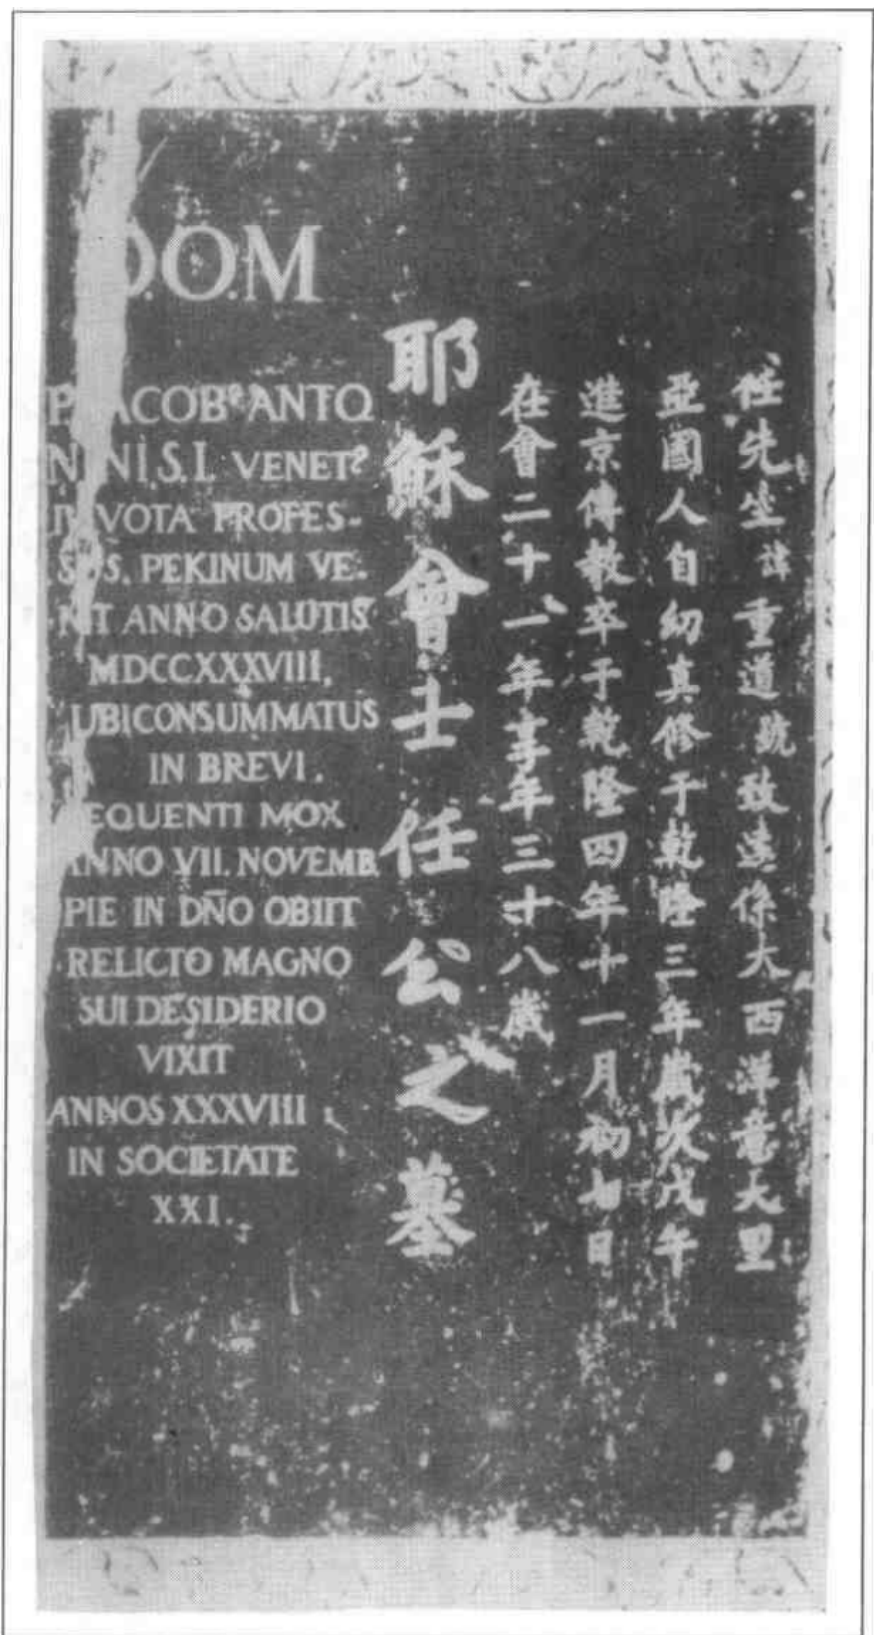 D.O.M
P. JACOBº ANTO
NINI, S.I. VENETº
IV VOTA PROFES-
SUS, PEKINUM VE-
NIT ANNO SALUTIS
MDCCXXXVIII,
UBI CONSUMMATUS
IN BREVI.
SEQUENTI MOX
ANNO VII. NOVEMB.
PIE IN DÑO OBIIT
RELICTO MAGNO
SUI DESIDERIO
VIXIT
ANNOS XXXVIII
IN SOCIETATE
XXI.
耶穌會士任公之墓
任先生諱重道號致遠係大西洋意大里
亞國人自幼真修于乾隆三年歲次戊午
進京傳教卒于乾隆四年十一月初七日
在會二十一年享年三十八歲